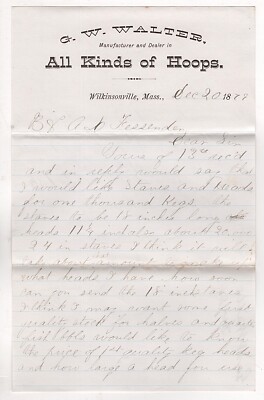 G. W. WALTER,
Manufacturer and Dealer in
All Kinds of Hoops.
Wilkinsonville, Mass., Dec 20 1879
Fessenden
Dear Sir
Yours of 13th
and in reply would say that
I would like Staves and heads
for one thousand Kegs the
staves to be 18 inches long
heads 11 1/4 and also about
94 in staves I think it will
what heads I have how soon
can you send the 18 inch staves
I think I may want some first
quality stock for halves and
fish bbls would like to know
the price of 1st quality keg heads
and how large a head you